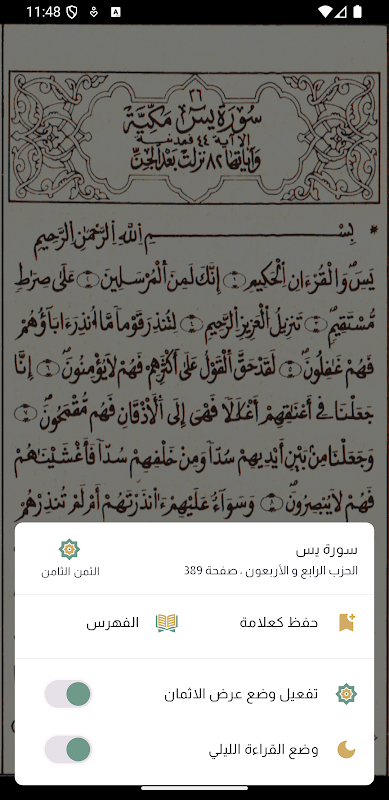 11:48
٣٦
سُورَةُ يسٓ مَكِّيَّة
إلا آية ٤٤ فمدنية
وَآيَاتُهَا ٨٢ نَزَلَتْ بَعْدَ الجِنِّ
بِسْمِ اِ۬للَّهِ اِ۬لرَّحْمَٰنِ اِ۬لرَّحِيمِ
يَسٓۖ وَالْقُرْءَانِ اِ۬لْحَكِيمِ ١ إِنَّكَ لَمِنَ اَ۬لْمُرْسَلِينَ ٢ عَلَىٰ صِرَٰطٖ
مُّسْتَقِيمٖ ٣ تَنزِيلُ اُ۬لْعَزِيزِ اِ۬لرَّحِيمِ ٤ لِتُنذِرَ قَوْماٗ مَّا أُنذِرَ ءَابَآؤُهُمْ
فَهُمْ غَٰفِلُونَۖ ٥ لَقَدْ حَقَّ اَ۬لْقَوْلُ عَلَىٰٓ أَكْثَرِهِمْ فَهُمْ لَا يُؤْمِنُونَۖ ٦ إِنَّا
جَعَلْنَا فِےٓ أَعْنَٰقِهِمُۥٓ أَغْلَٰلاٗ فَهِيَ إِلَى اَ۬لْأَذْقَانِ فَهُم مُّقْمَحُونَۖ ٧
وَجَعَلْنَا مِنۢ بَيْنِ أَيْدِيهِمْ سُدّاٗ وَمِنْ خَلْفِهِمْ سُدّاٗ فَأَغْشَيْنَٰهُمْ
فَهُمْ لَا يُبْصِرُونَۖ ٨ وَسَوَآءٌ عَلَيْهِمُۥٓ ءَآنذَرْتَهُمُۥٓ أَمْ لَمْ تُنذِرْهُمْ
سورة يس
الحزب الرابع و الأربعون ، صفحة 389
الثمن الثامن
حفظ كعلامة
الفهرس
تفعيل وضع عرض الاثمان
وضع القراءة الليلي